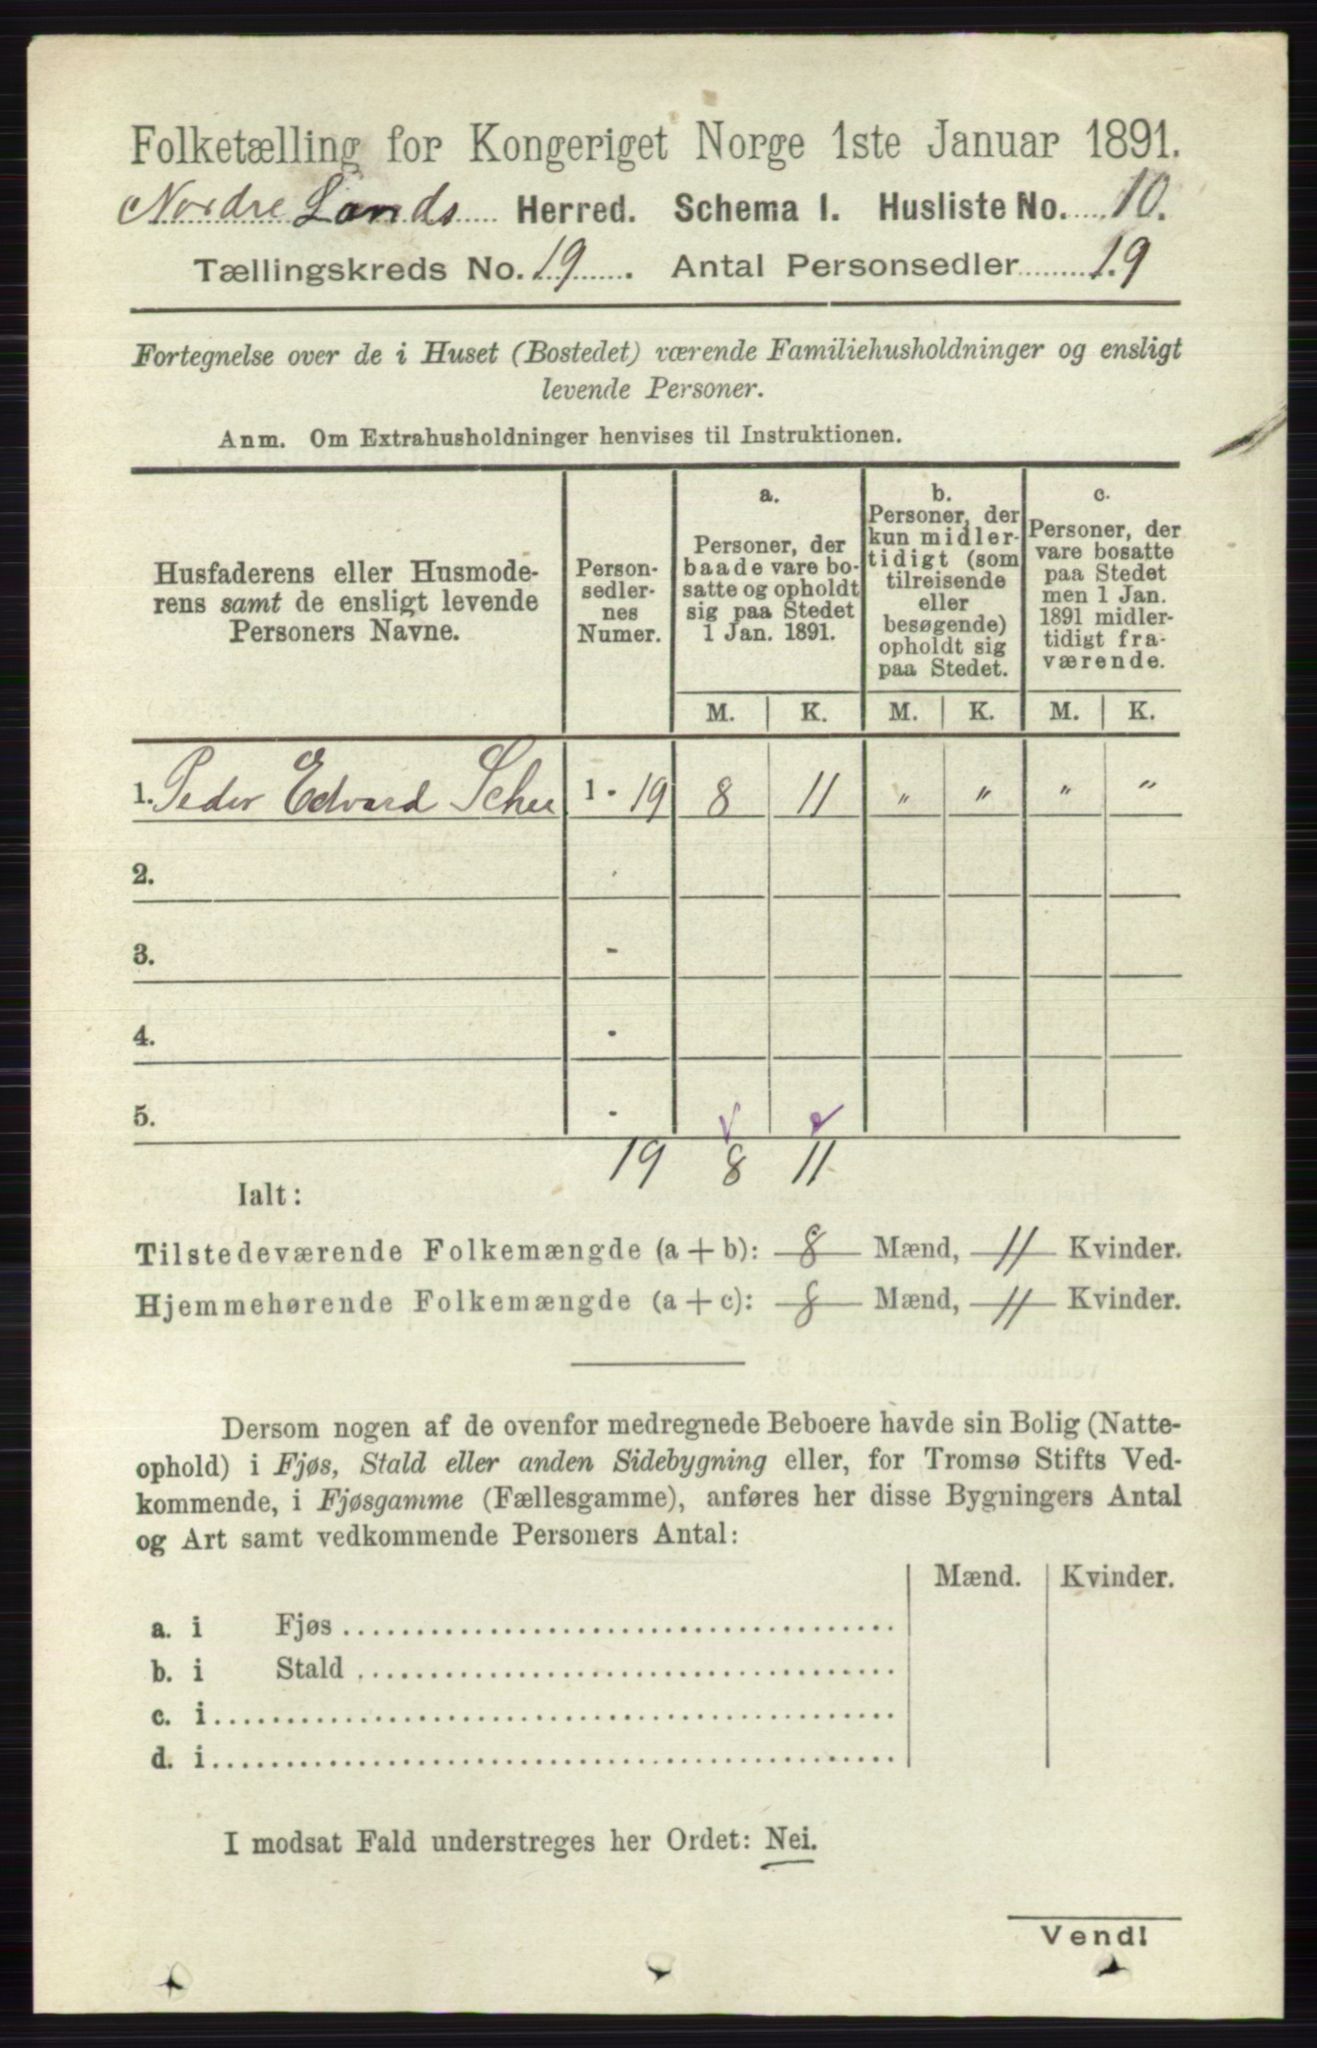 Folketælling for Kongeriget Norge 1ste Januar 1891.
Nordre Lands Herred. Schema 1. Husliste No. 10.
Tællingskreds No. 19. Antal Personsedler 19
Fortegnelse over de i Huset (Bostedet) værende Familiehusholdninger og ensligt
levende Personer.
Anm. Om Extrahusholdninger henvises til Instruktionen.
Husfaderens eller Husmode-
rens samt de ensligt levende
Personers Navne.
Person-
sedler-
nes
Numer.
a.
Personer, der
baade vare bo-
satte og opholdt
sig paa Stedet
1 Jan. 1891.
b.
Personer, der
kun midler-
tidigt (som
tilreisende
eller
besøgende)
opholdt sig
paa Stedet.
c.
Personer, der
vare bosatte
paa Stedet
men 1 Jan.
1891 midler-
tidigt fra-
værende.
M. K. M. K. M. K.
1. Peder Edvard Schee 1 - 19 8 11 " " " "
2.
3. -
4. -
5. -
19 8 11
Ialt:
Tilstedeværende Folkemængde (a + b): 8 Mænd, 11 Kvinder.
Hjemmehørende Folkemængde (a + c): 8 Mænd, 11 Kvinder.
Dersom nogen af de ovenfor medregnede Beboere havde sin Bolig (Natte-
ophold) i Fjøs, Stald eller anden Sidebygning eller, for Tromsø Stifts Ved-
kommende, i Fjøsgamme (Fællesgamme), anføres her disse Bygningers Antal
og Art samt vedkommende Personers Antal:
Mænd. Kvinder.
a. i Fjøs
b. i Stald
c. i
d. i
I modsat Fald understreges her Ordet: Nei.
Vend!